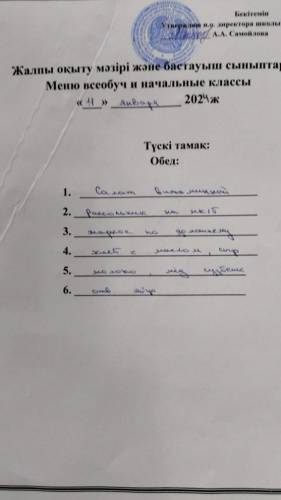 Бекітемін
Утверждаю и.о. директора школы
А.А. Самойлова
Жалпы оқыту мәзірі және бастауыш сыныптар
Меню всеобуч и начальные классы
« 11 » января 2024 ж
Түскі тамақ:
Обед:
1. Салат витаминный
2. Рассольник на мкб
3. жаркое по домашнему
4. хлеб с маслом, сыр
5. молоко, мёд
6. отв яйцо